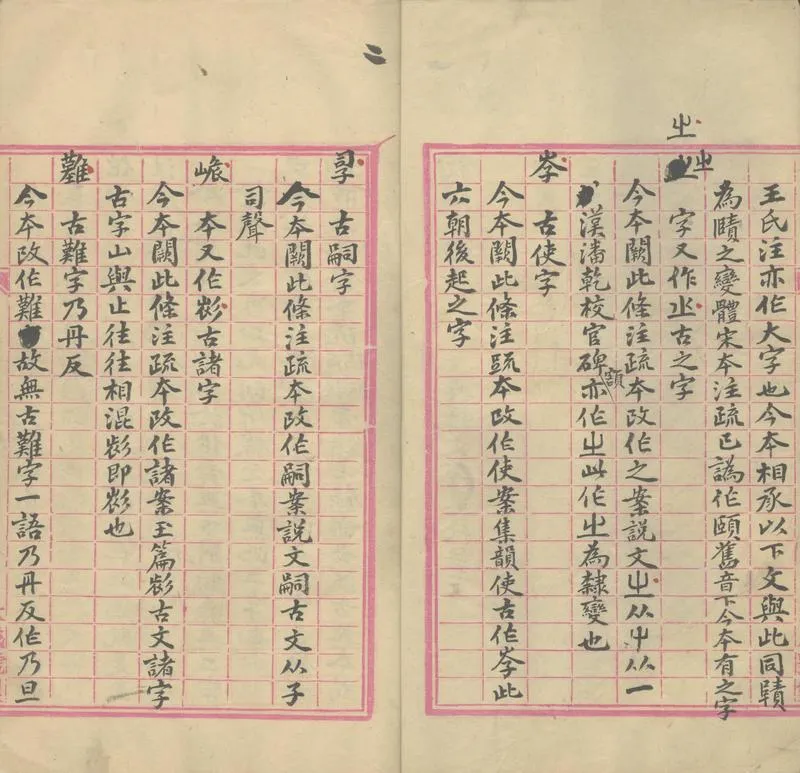 王氏注亦作大字也今本相承以下文與此同賾
為賾之變體宋本注疏已譌作頤舊音下今本有之字
㞢
字又作㞢古之字
今本闕此條注疏本改作之案說文㞢从屮从一
漢潘乾校官碑額亦作㞢此作㞢為隸變也
峚
古使字
今本闕此條注疏本改作使案集韻使古作峚此
六朝後起之字
二
𤔲
古嗣字
今本闕此條注疏本改作嗣案說文嗣古文从子
司聲
本又作古諸字
今本闕此條注疏本改作諸案玉篇古文諸字
古字山與止往往相混即也
古難字乃丹反
今本改作難故無古難字一語乃丹反作乃旦